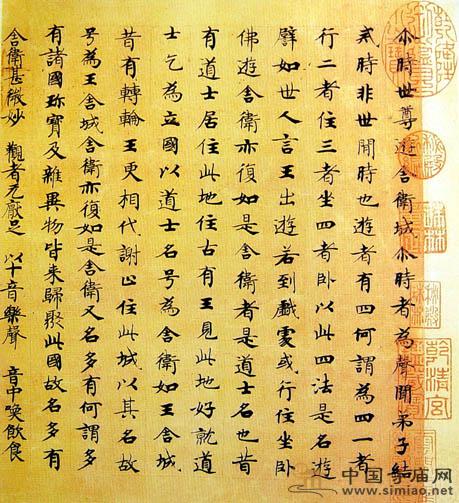 尒時世尊遊舍衛城尒時者為聲聞弟子結
戒時非世間時也遊者有四何謂為四一者
行二者住三者坐四者卧以此四法是名遊
譬如世人言王出遊若到戲處或行住坐卧
佛遊舍衛亦復如是舍衛者是道士名也昔
有道士居住此地住古有王見此地好就道
士乞為立國以道士名号為舍衛如王舍城
昔有轉輪王更相代謝止住此城以其名故
号為王舍城舍衛亦復如是舍衛又名多有何謂多
有諸國珎寶及雜異物皆来歸聚此國故名多有
舍衛甚微妙 觀者无厭足 以十音樂聲 音中喚飲食
乾清宮
中国寺庙网
www.simiao.net